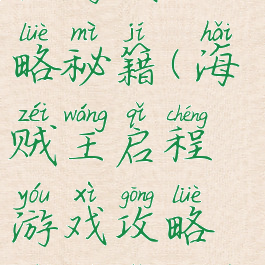 lüè mì jí hǎi
略秘籍(海
zéi wáng qǐ chéng
贼王启程
yóu xì gōng lüè
游戏攻略